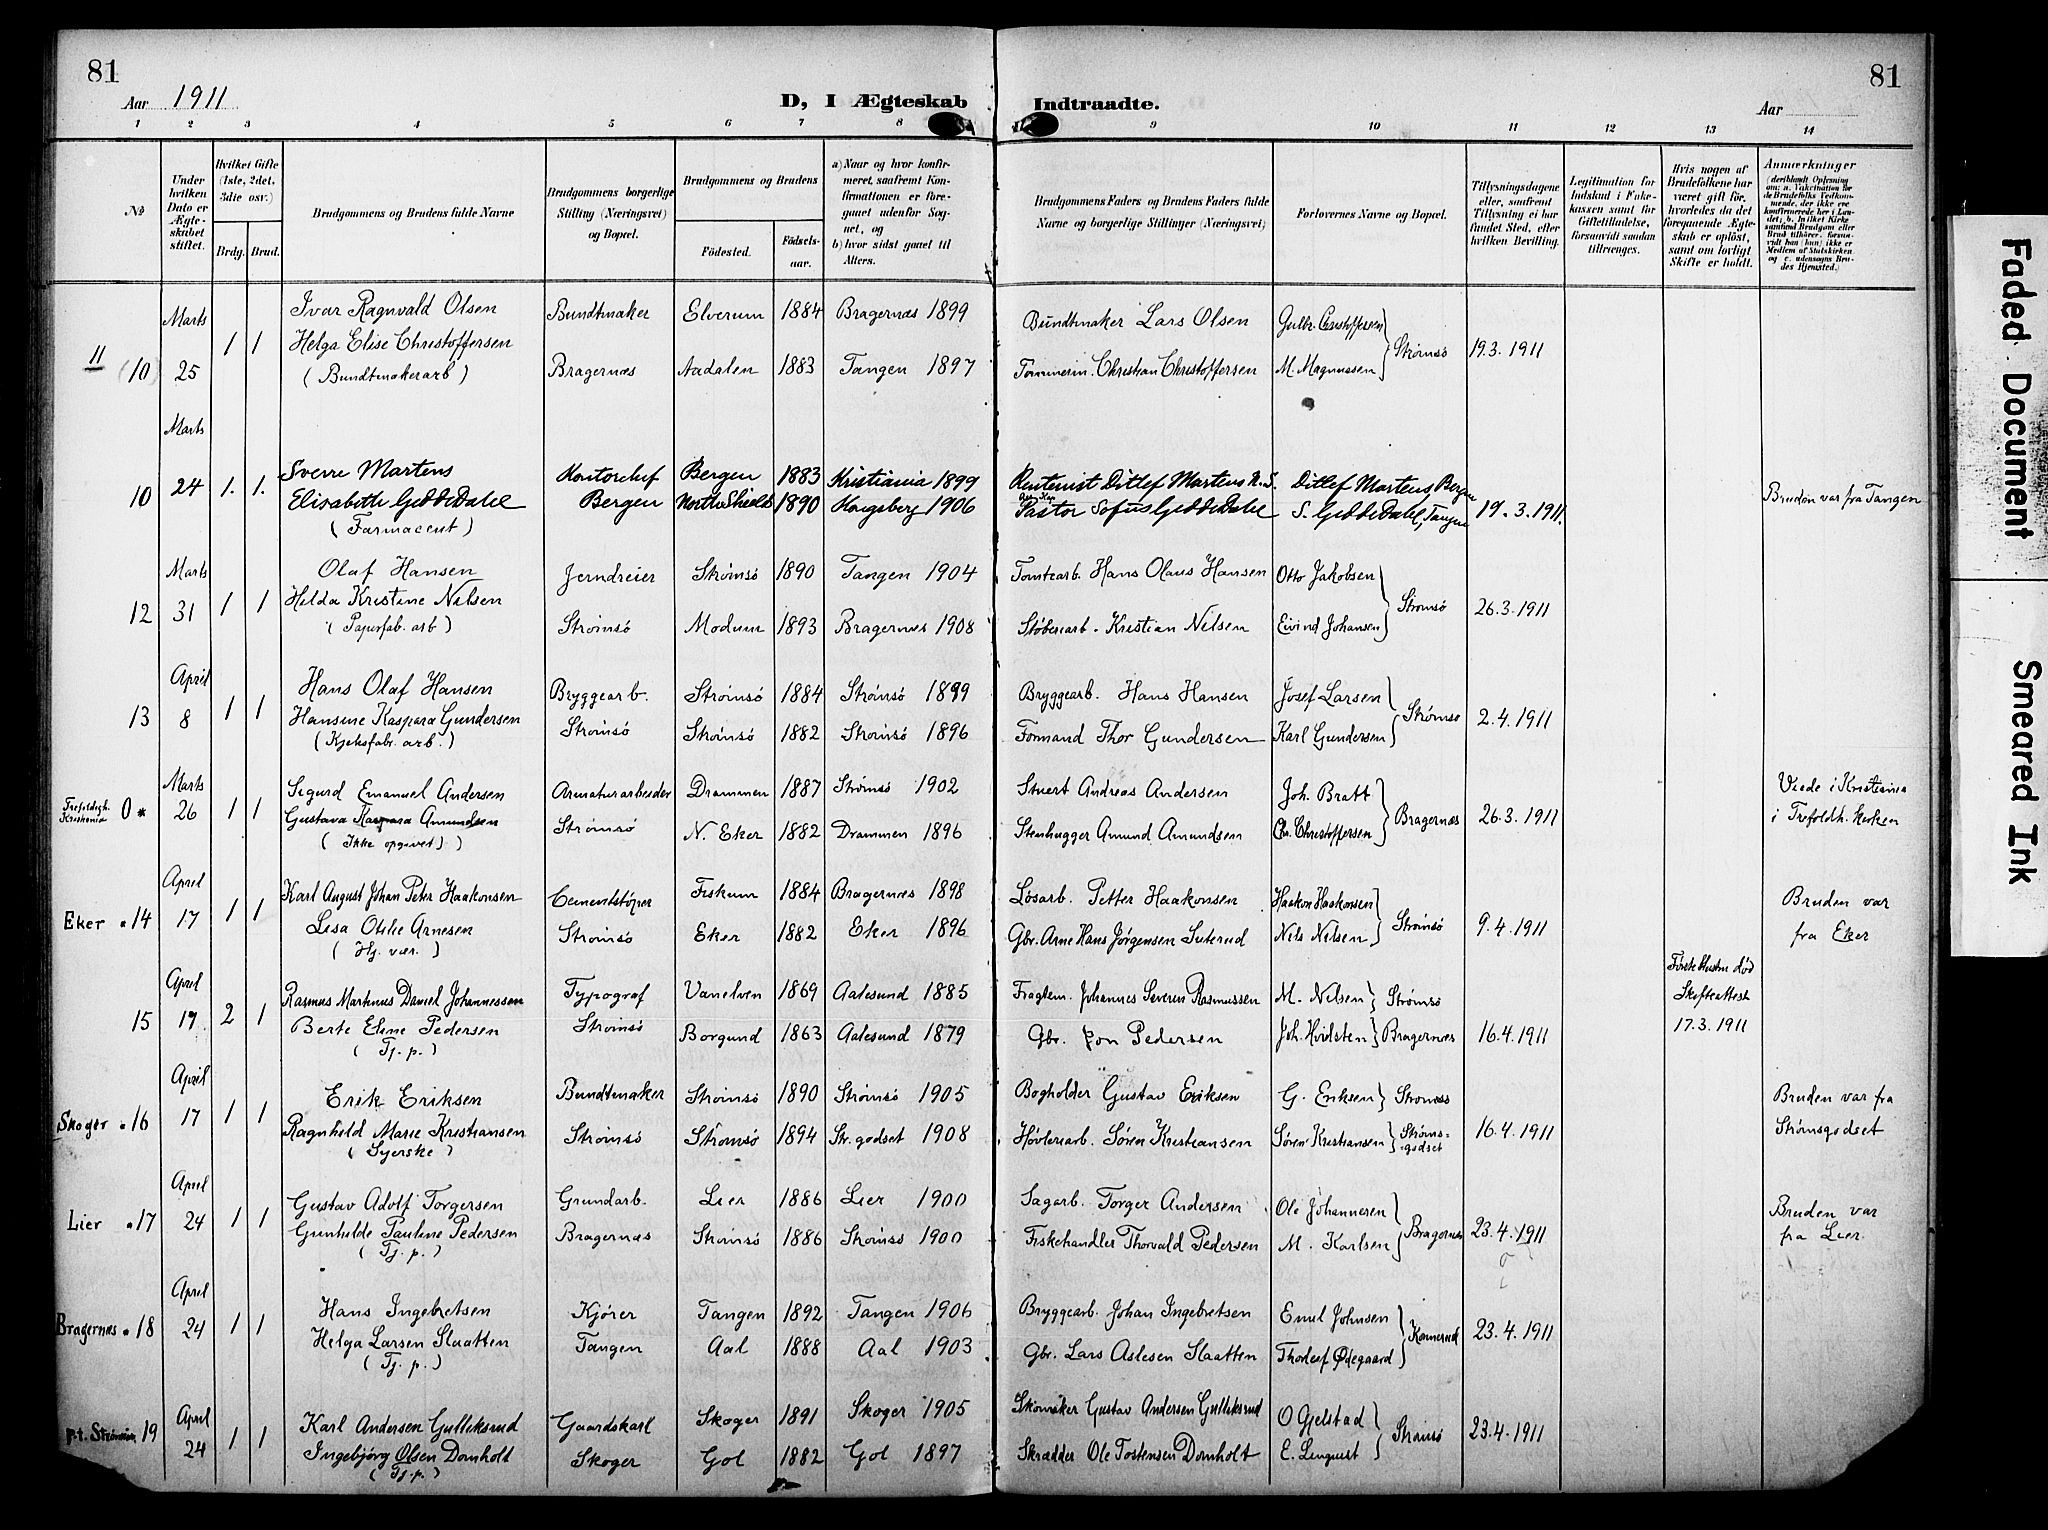 81
Aar 1911
D, I Ægteskab Indtraadte.
Aar
81
1 2 3 4 5 6 7 8 9 10 11 12 13 14
№
Under hvilken Dato er Ægteskabet stiftet.
Hvilket Gifte (1ste, 2det, 3die osv.)
Brdg. Brud.
Brudgommens og Brudens fulde Navne
Brudgommens borgerlige Stilling (Næringsvei) og Bopæl.
Brudgommens og Brudens
Fødested. Fødselsaar.
a) Naar og hvor konfirmeret, saafremt Konfirmationen er foregaaet udenfor Sognet, og
b) hvor sidst gaaet til Alters.
Brudgommens Faders og Brudens Faders fulde Navne og borgerlige Stillinger (Næringsvei)
Forlovernes Navne og Bopæl.
Tillysningsdagene eller, saafremt Tillysning ei har fundet Sted, efter hvilken Bevilling.
Legitimation for Indskud i Enkekassen samt for Giftetilladelse, forsaavidt saadan tiltrænges.
Hvis nogen af Brudefolkene har været gift før, hvorledes da det foregaaende Ægteskab er opløst, samt om lovligt Skifte er holdt.
Anmærkninger
Marts Ivar Ragnvald Olsen Bundtmaker Elverum 1884 Bragernæs 1899 Bundtmaker Lars Olsen Gulbr. Christoffersen
11 (10) 25 1 1 Helga Elise Christoffersen Strømsö 19.3.1911
(Bundtmakerarb) Bragernæs Aadalen 1883 Tangen 1897 Tømmerm. Christian Christoffersen M. Magnussen
Marts
Sverre Martens Kontorchef Bergen 1883 Kristiania 1899 Rentenist Ditlef Martens Ditlef Martens Bergen
10 24 1. 1. Elisabeth GeddeDahl Bergen North Shields 1890 Kongsberg 1906 Pastor Sofus GeddeDahl S. GeddeDahl, Tangen 19.3.1911. Bruden var fra Tangen
(Farmaceut)
Marts Olaf Hansen Jerndreier Strømsö 1890 Tangen 1904 Tomtearb. Hans Olaus Hansen Otto Jakobsen
12 31 1 1 Hilda Kristine Nilsen Strømsö 26.3.1911
(Papirfab. arb) Strømsö Modum 1893 Bragernæs 1908 Støberiarb. Kristian Nilsen Eivind Johansen
April Hans Olaf Hansen Bryggearb. Strømsö 1884 Strømsö 1899 Bryggearb. Hans Hansen Josef Larsen
13 8 1 1 Hansine Kaspara Gundersen Strømsö Strømsö 1882 Strømsö 1896 Formand Thor Gundersen Karl Gundersen Strømsø 2.4.1911
(Kjeksfabr. arb.)
Marts Sigurd Emanuel Andersen Armaturarbeider Drammen 1887 Strømsö 1902 Stuert Andreas Andersen Joh. Bratt Viede i Kristiania
Trefoldigh. Kristiania 0 * 26 1 1 Gustava Kaspara Amundsen Strømsö N. Eker 1882 Drammen 1896 Stenhugger Amund Amundsen Chr. Christoffersen Bragernæs 26.3.1911 i Trefoldh. kirken
(Ikke opgivet)
April Karl August Johan Peter Haakonsen Cementstøper Fiskum 1884 Bragernæs 1898 Løsarb. Petter Haakonsen Haakon Haakonsen Bruden var
Eker 14 17 1 1 Lisa Otilie Arnesen Strømsö Eker 1882 Eker 1896 Gbr. Arne Hans Jørgensen Nils Nilsen Strømsö 9.4.1911 fra Eker
(Hj. vær.)
April Rasmus Martinus Daniel Johannessen Typograf Vanelven 1869 Aalesund 1885 Fragtem. Johannes Severin Rasmussen M. Nilsen Strømsö Første Hustru død
15 17 2 1 Berte Eline Pedersen Strømsö Borgund 1863 Aalesund 1879 Gbr. Jon Pedersen Joh. Hvidsten Bragernæs 16.4.1911 Skifteattest 17.3.1911
(Tj. p.)
April Erik Eriksen Bundtmaker Strømsö 1890 Strømsö 1905 Bogholder Gustav Eriksen G. Eriksen Strømsö Bruden var fra
Skoger 16 17 1 1 Ragnhild Marie Kristiansen Strømsö Strømsö 1894 Str. godset 1908 Høvleriarb. Søren Kristiansen Søren Kristiansen Strømsgodset 16.4.1911 Strømsgodset
(Syerske)
April Gustav Adolf Torgersen Grundarb. Lier 1886 Lier 1900 Sagarb. Torger Andersen Ole Johannesen Bruden var
Lier 17 24 1 1 Gunhilde Pauline Pedersen Bragernæs Strømsö 1886 Strømsö 1900 Fiskehandler Thorvald Pedersen M. Karlsen Bragernæs 23.4.1911 fra Lier
(Tj. p.)
April Hans Ingebretsen Kjører Tangen 1892 Tangen 1906 Bryggearb. Johan Ingebretsen Emil Johnsen
Bragernæs 18 24 1 1 Helga Larsen Slaatten Tangen Aal 1888 Aal 1903 Gbr. Lars Aslesen Slaatten Thorleif Ødegaard Konnerud 23.4.1911
(Tj. p.)
April Karl Andersen Gulliksrud Gaardskarl Skoger 1891 Skoger 1905 Skomaker Gustav Andersen Gulliksrud O Gjelstad
p.t. Strømmen 19 24 1 1 Ingebjörg Olsen Dornholt Skoger Gol 1882 Gol 1897 Skrædder Ole Tostensen Dornholt E. Lingquist Strømsö 23.4.1911
(Tj. p.)
Faded Document
Smeared Ink